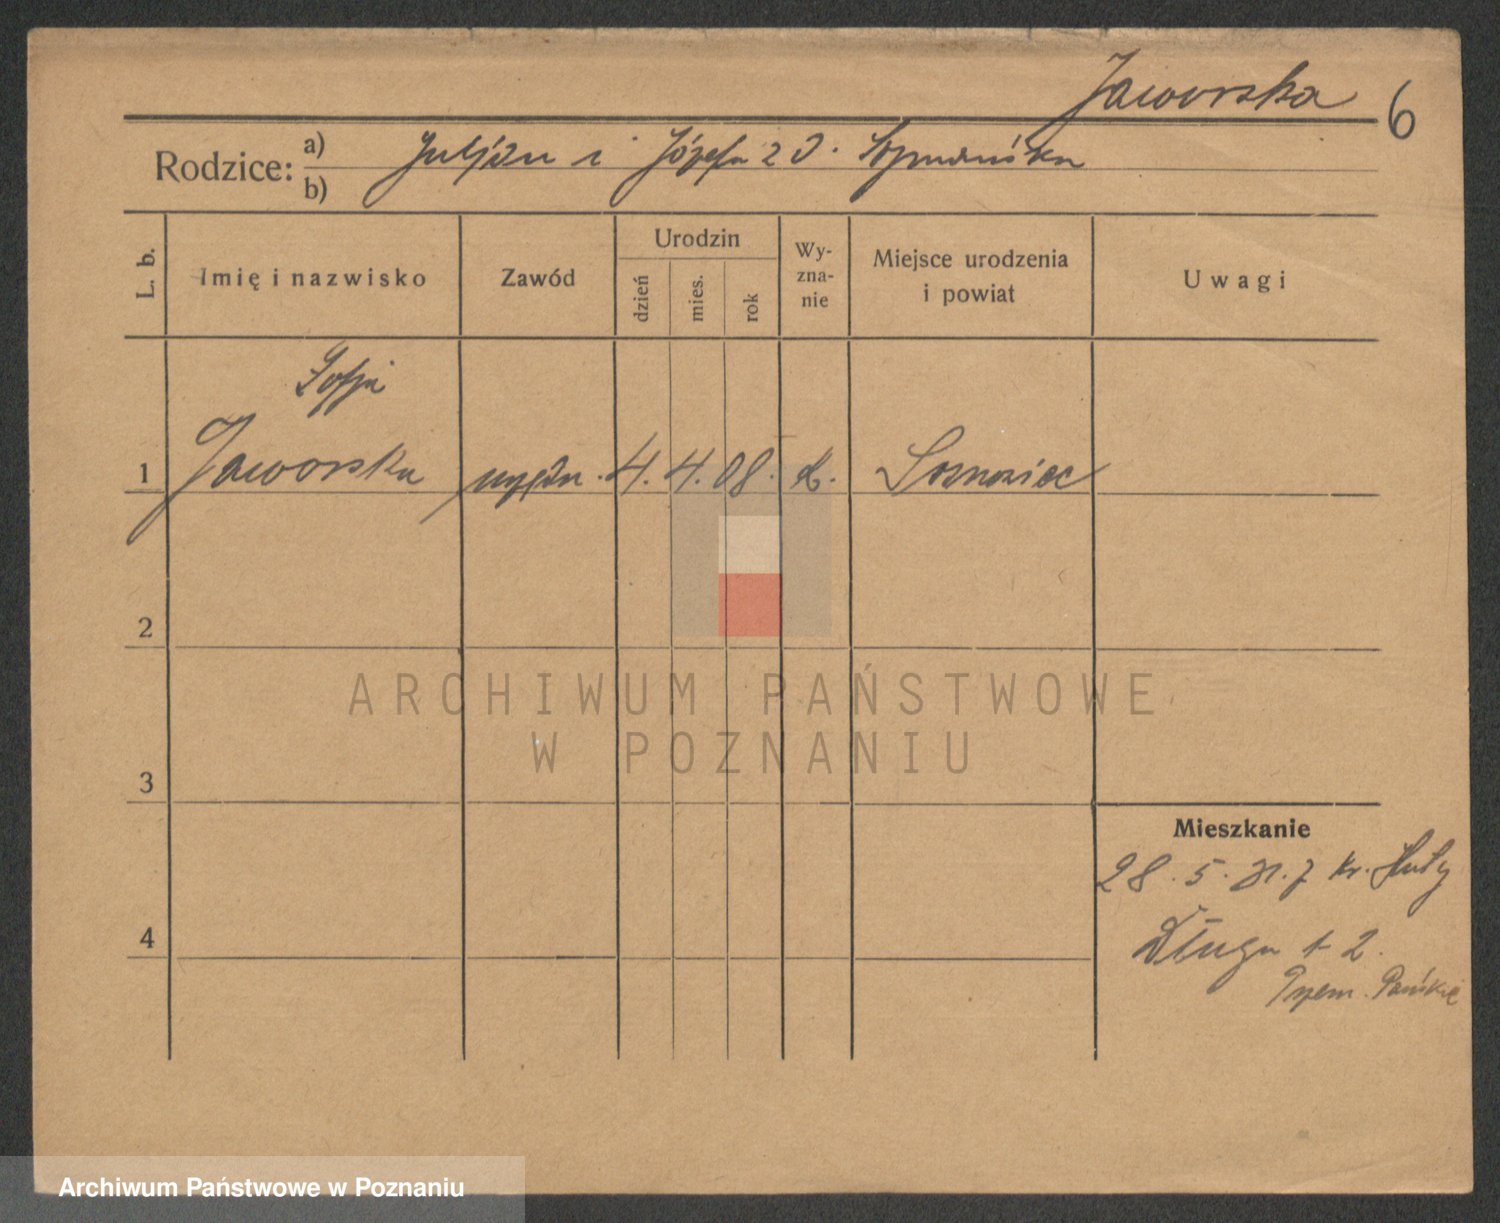 Jaworska 6
Rodzice: a) Juljan i Józefa z d. Szymańska
b)
L. b. Imię i nazwisko Zawód Urodzin dzień mies. rok Wy-zna-nie Miejsce urodzenia i powiat Uwagi
Zofja
1 Jaworska 4. 4. 08. k. Sosnowiec
2
ARCHIWUM PAŃSTWOWE
W POZNANIU
3
Mieszkanie
28. 5. 31. z Kr. Huty
4 Długa 2.
Archiwum Państwowe w Poznaniu